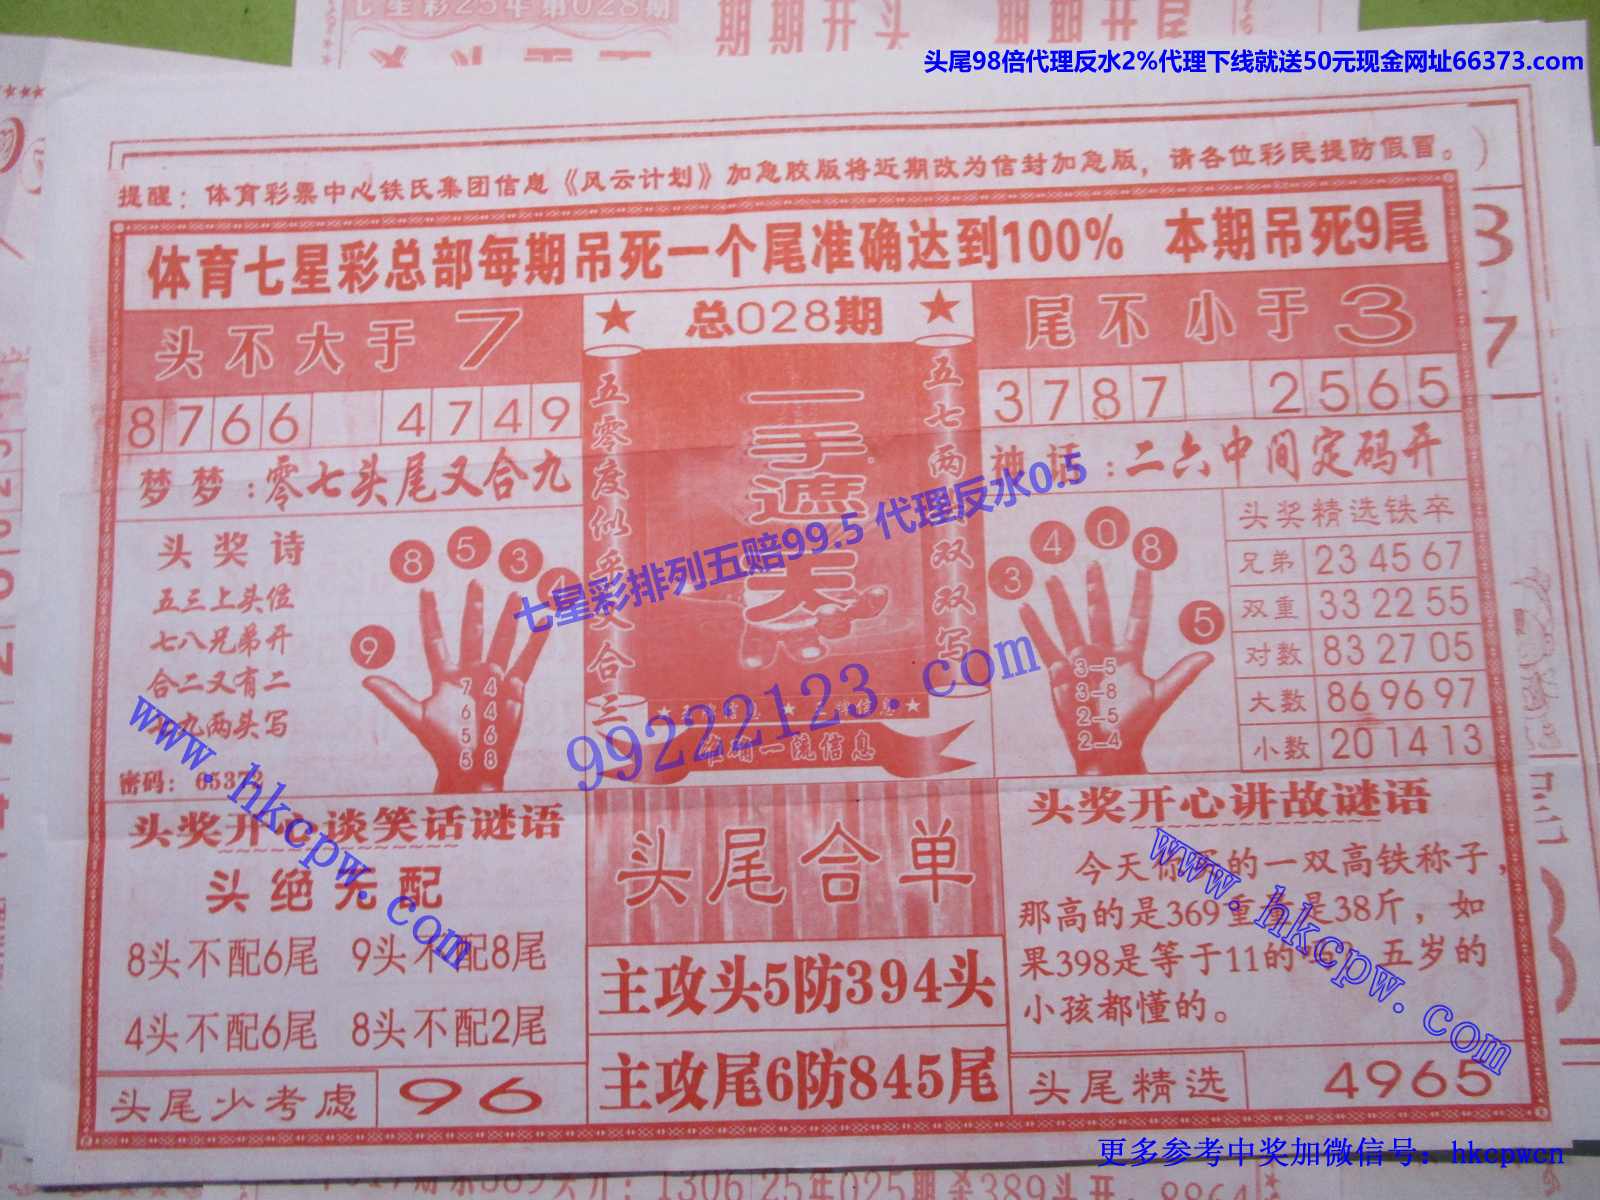 七星彩25年第028期
期期开头 期期开尾
头尾98倍代理反水2%代理下线就送50元现金网址66373.com
提醒：体育彩票中心铁氏集团信息《风云计划》加急胶版将近期改为信封加急版，请各位彩民提防假冒。
体育七星彩总部每期吊死一个尾准确达到100% 本期吊死9尾
头不大于7
总028期
尾不小于3
8766 4749
3787 2565
梦梦：零七头尾又合九
神话：二六中间定码开
五零度似乎又合三
一手遮天
五七两 双双写
七星彩排列五赔99.5 代理反水0.5
99222123.com
头奖诗
五三上头位
七八兄弟开
合二又有二
九两头写
密码：65372
9 8 5 3 4
7 4
6 4
5 6
5 8
3 4 0 8 5
3-5
3-8
2-5
2-4
头奖精选铁卒
兄弟 23 45 67
双重 33 22 55
对数 83 27 05
大数 86 96 97
小数 20 14 13
准确一流信息
头奖开心谈笑话谜语
头绝无配
8头不配6尾 9头不配8尾
4头不配6尾 8头不配2尾
头尾少考虑 96
头尾合单
主攻头5防394头
主攻尾6防845尾
头奖开心讲故谜语
今天你买的一双高铁称子，
那高的是369重量是38斤，如
果398是等于11的吗？五岁的
小孩都懂的。
头尾精选 4965
www.hkcpw.com
www.hkcpw.com
更多参考中奖加微信号：hkcpwcn